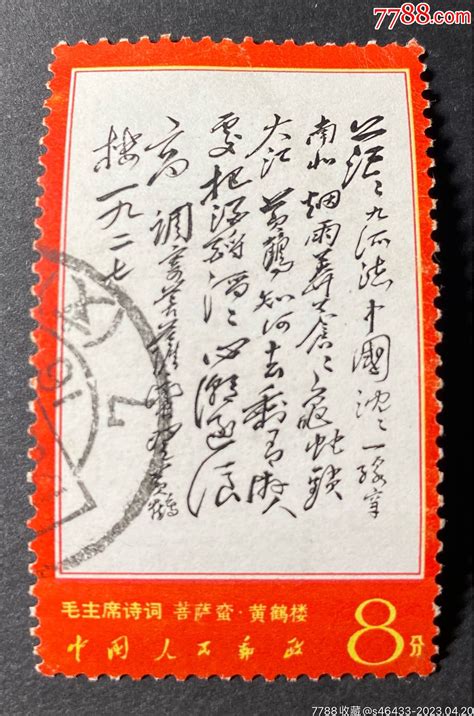 7788.com
茫〻九派流中國沈〻一線穿
南北烟雨莽蒼〻龜蛇鎖
大江黃鶴知何去剩有遊人
處把酒酹滔〻心潮逐浪
高 調寄菩薩蠻登黃鶴
樓一九二七
毛主席诗词 菩萨蛮·黄鹤楼
中国人民邮政
8分
7788收藏@s46433-2023.04.20